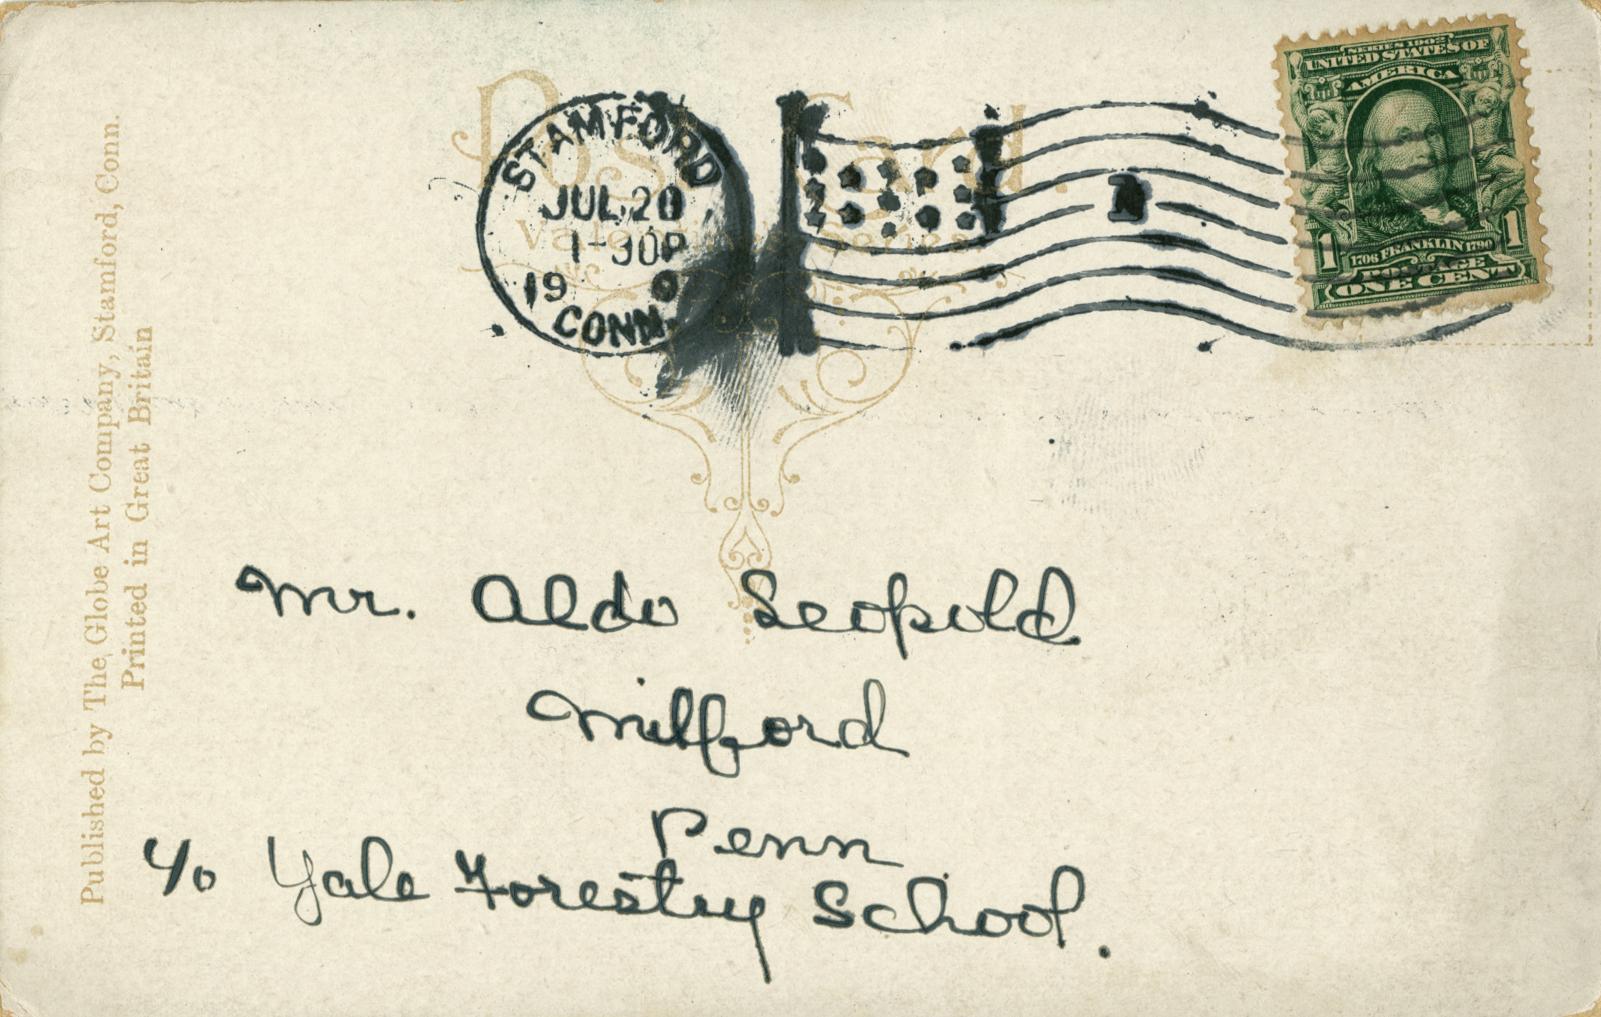 Post Card.
Valentine's Series
STAMFORD
JUL 20
1-30P
19 0
CONN.
1
SERIES 1902
UNITED STATES OF
AMERICA
1 1
1706 FRANKLIN 1790
POSTAGE
ONE CENT
Published by The Globe Art Company, Stamford, Conn.
Printed in Great Britain
Mr. Aldo Leopold
Milford
Penn
c/o Yale Forestry School.